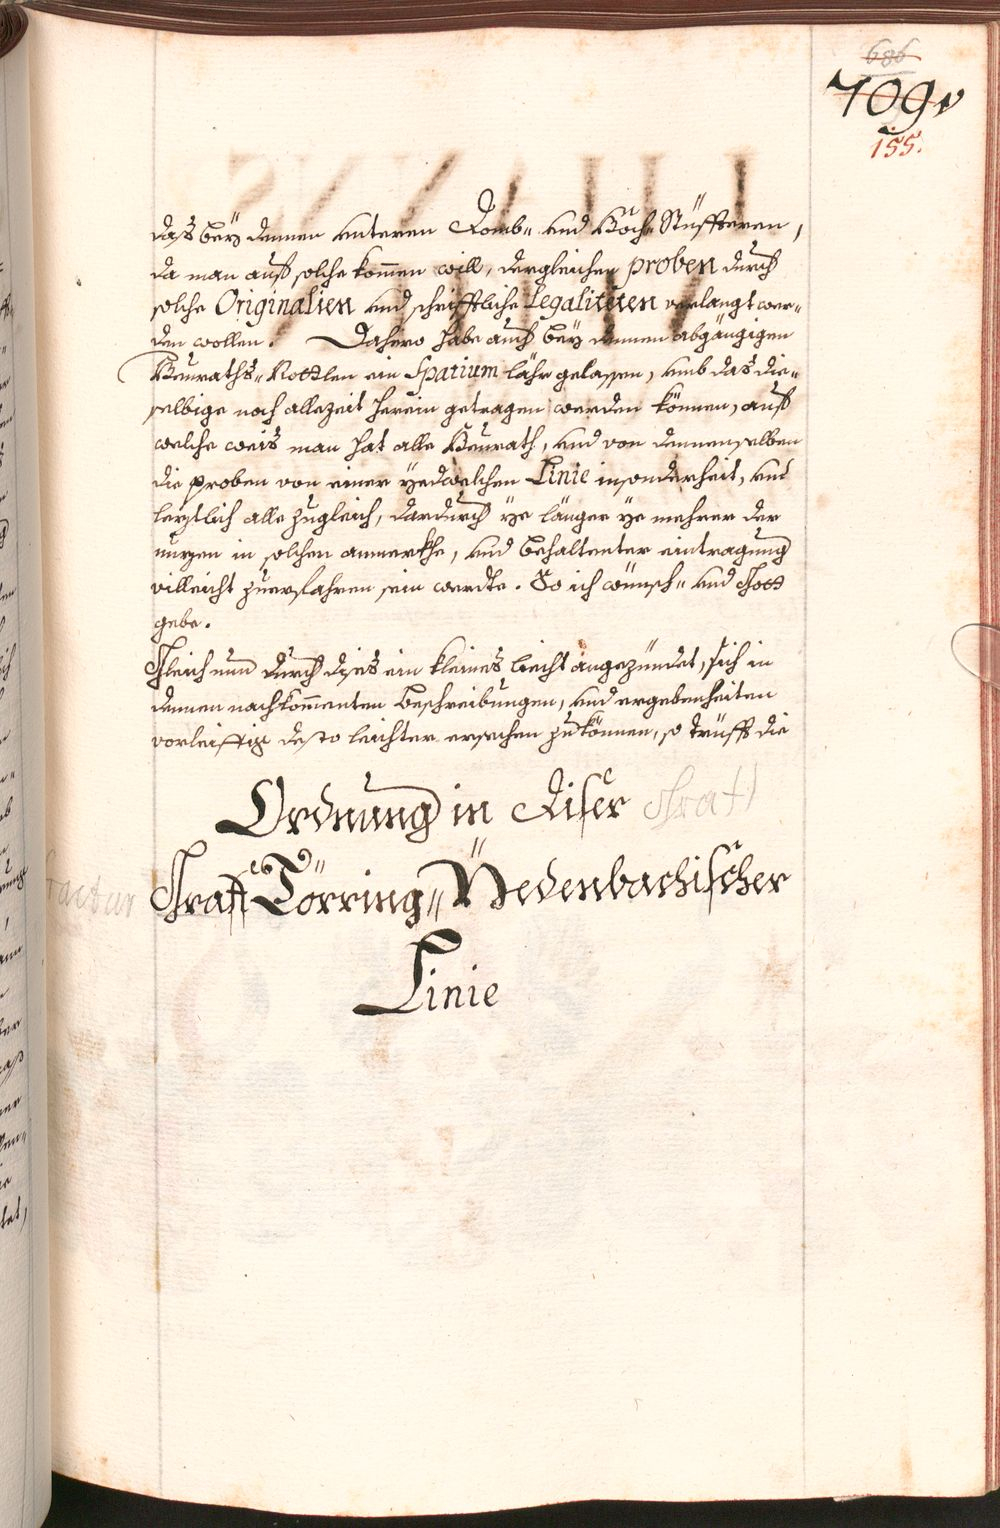 686
709
155.
das beÿ dennen unteren Domb= und Hoch Stüffteren,
da man auf solche kom̅en will, dergleichen proben durch
solche Originalien und schrifftliche Legaliteten verlangt wer=
den wollen. Dahero habe auch beÿ denen abgängigen
Heuraths= Nottlen ein Spatium lähr gelassen, umb das die=
selbige noch allezeit herein getragen werden können, auf
welche weis man hat alle Heurath, und von dennenselben
die proben von einer ÿedwelchen Linie insonderheit, und
leztlich alle zugleich, dardurch ÿe länger ÿe mehrer der
nuzen in solchen anmerkhe, und behaltenter eintragung
villeicht zuerfahren sein werdte. So ich wünsch= und Gott
gebe.
Gleich nun durch dises ein kleines liecht angezündet, sich in
dennen nachkom̅enten beschreibungen, und ergebenheiten
vorleiffig desto leichter ersechen zu können, so trüfft die
Ordnung in diser
Graff Törring= Ÿedenbachischer
Linie